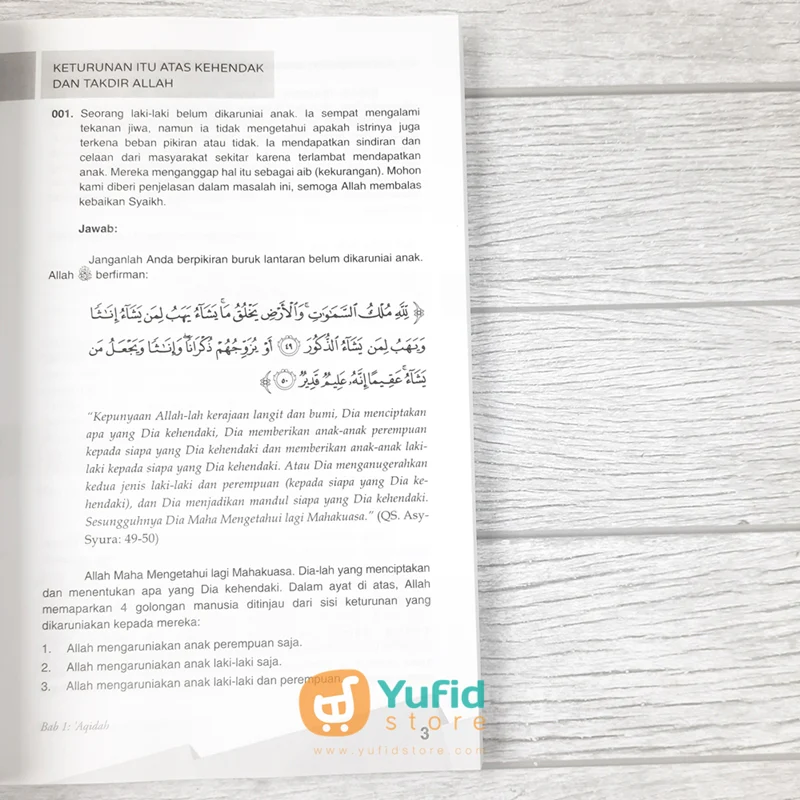 KETURUNAN ITU ATAS KEHENDAK
DAN TAKDIR ALLAH
001. Seorang laki-laki belum dikaruniai anak. Ia sempat mengalami
tekanan jiwa, namun ia tidak mengetahui apakah istrinya juga
terkena beban pikiran atau tidak. Ia mendapatkan sindiran dan
celaan dari masyarakat sekitar karena terlambat mendapatkan
anak. Mereka menganggap hal itu sebagai aib (kekurangan). Mohon
kami diberi penjelasan dalam masalah ini, semoga Allah membalas
kebaikan Syaikh.
Jawab:
Janganlah Anda berpikiran buruk lantaran belum dikaruniai anak.
Allah ﷻ berfirman:
﴿ لِلَّهِ مُلْكُ السَّمَاوَاتِ وَالْأَرْضِ يَخْلُقُ مَا يَشَاءُ يَهَبُ لِمَن يَشَاءُ إِنَاثًا
وَيَهَبُ لِمَن يَشَاءُ الذُّكُورَ ﴿٤٩﴾ أَوْ يُزَوِّجُهُمْ ذُكْرَانًا وَإِنَاثًا وَيَجْعَلُ مَن
يَشَاءُ عَقِيمًا إِنَّهُ عَلِيمٌ قَدِيرٌ ﴿٥٠﴾ ﴾
“Kepunyaan Allah-lah kerajaan langit dan bumi, Dia menciptakan
apa yang Dia kehendaki, Dia memberikan anak-anak perempuan
kepada siapa yang Dia kehendaki dan memberikan anak-anak laki-
laki kepada siapa yang Dia kehendaki. Atau Dia menganugerahkan
kedua jenis laki-laki dan perempuan (kepada siapa yang Dia ke-
hendaki), dan Dia menjadikan mandul siapa yang Dia kehendaki.
Sesungguhnya Dia Maha Mengetahui lagi Mahakuasa.” (QS. Asy-
Syura: 49-50)
Allah Maha Mengetahui lagi Mahakuasa. Dia-lah yang menciptakan
dan menentukan apa yang Dia kehendaki. Dalam ayat di atas, Allah
memaparkan 4 golongan manusia ditinjau dari sisi keturunan yang
dikaruniakan kepada mereka:
1. Allah mengaruniakan anak perempuan saja.
2. Allah mengaruniakan anak laki-laki saja.
3. Allah mengaruniakan anak laki-laki dan perempuan.
Yufid
store
www.yufidstore.com
Bab 1: 'Aqidah
3